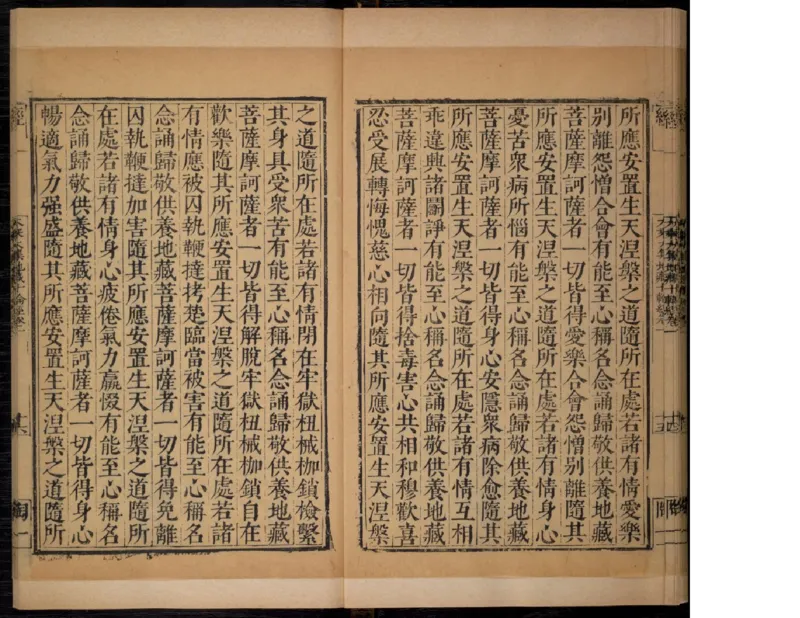 所應安置生天涅槃之道隨所在處若諸有情愛樂
別離怨憎合會有能至心稱名念誦歸敬供養地藏
菩薩摩訶薩者一切皆得愛樂合會怨憎別離隨其
所應安置生天涅槃之道隨所在處若諸有情身心
憂苦衆病所惱有能至心稱名念誦歸敬供養地藏
菩薩摩訶薩者一切皆得身心安隱衆病除愈隨其
所應安置生天涅槃之道隨所在處若諸有情互相
乖違興諸鬪諍有能至心稱名念誦歸敬供養地藏
菩薩摩訶薩者一切皆得捨毒害心共相和穆歡喜
忍受展轉悔愧慈心相向隨其所應安置生天涅槃
之道隨所在處若諸有情閉在牢獄杻械枷鎖檢繫
其身具受衆苦有能至心稱名念誦歸敬供養地藏
菩薩摩訶薩者一切皆得解脫牢獄杻械枷鎖自在
歡樂隨其所應安置生天涅槃之道隨所在處若諸
有情應被囚執鞭撻拷楚臨當被害有能至心稱名
念誦歸敬供養地藏菩薩摩訶薩者一切皆得免離
囚執鞭撻加害隨其所應安置生天涅槃之道隨所
在處若諸有情身心疲倦氣力羸惙有能至心稱名
念誦歸敬供養地藏菩薩摩訶薩者一切皆得身心
暢適氣力强盛隨其所應安置生天涅槃之道隨所